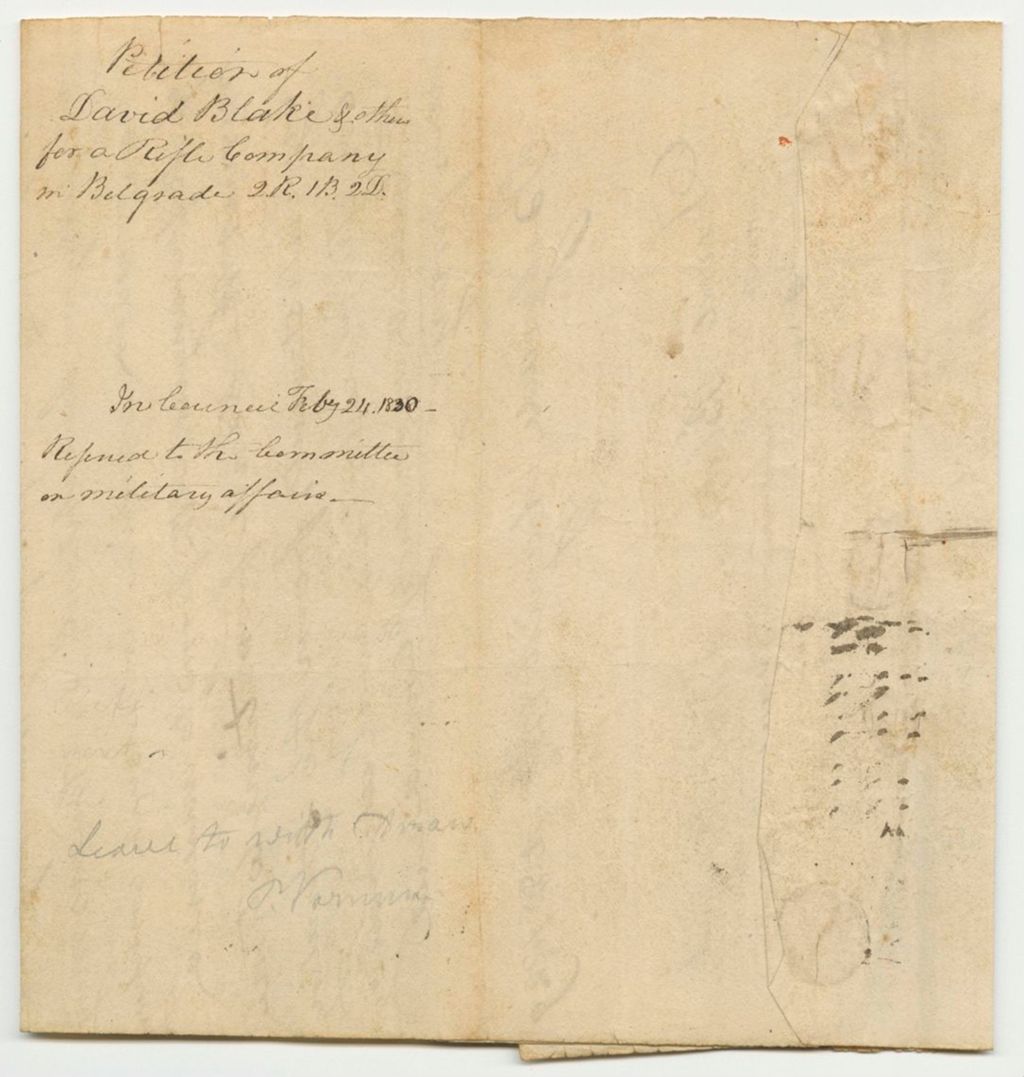 Petition of
David Blake & others
for a Rifle Company
in Belgrade 2.R. 1B. 2D.
In Council Feby 24. 1830 –
Referred to the Committee
on military affairs. —
Leave to with Draw